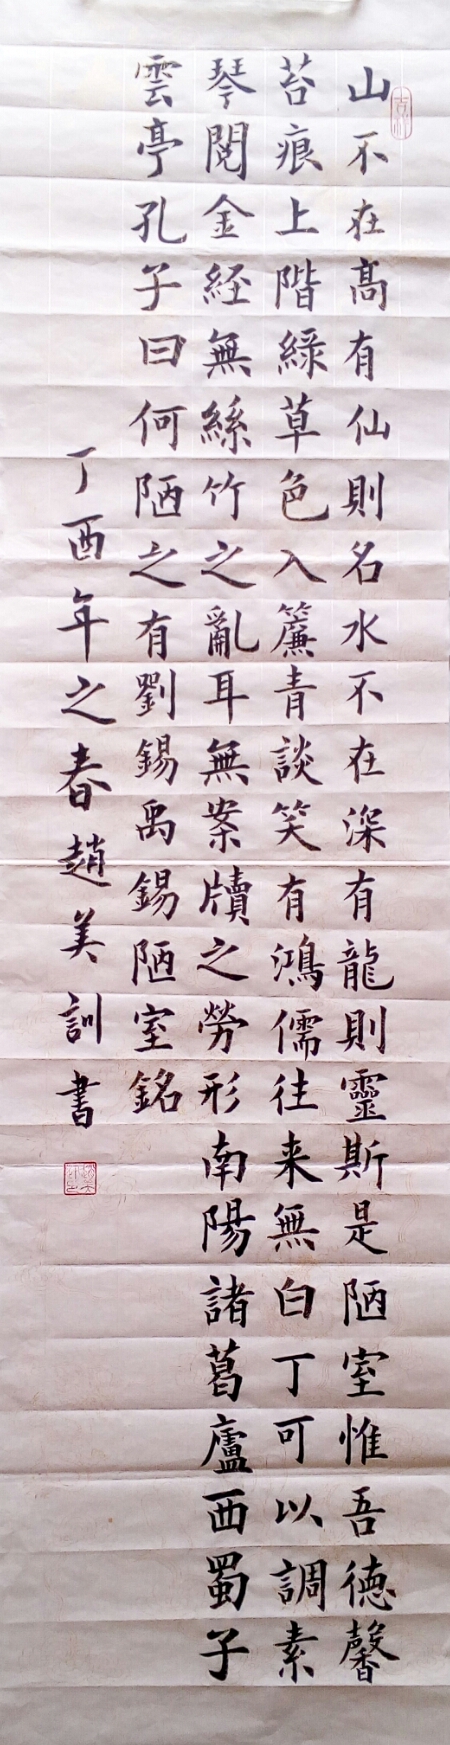 山不在髙有仙則名水不在深有龍則靈斯是陋室惟吾德馨
苔痕上階綠草色入簾青談笑有鴻儒往来無白丁可以調素
琴閱金経無絲竹之亂耳無案牘之勞形南陽諸葛廬西蜀子
雲亭孔子曰何陋之有劉錫禹錫陋室銘
丁酉年之春趙美訓書